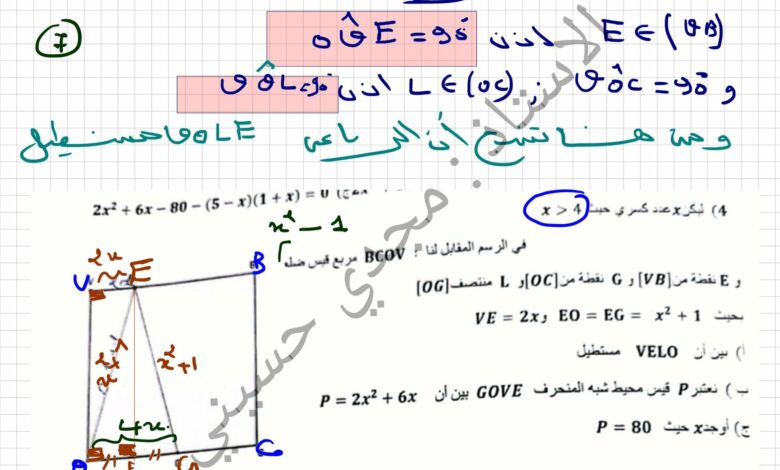 7
E ∈ (VB) اذن OV̂E = 90°
و VÔC = 90° و L ∈ (OC) اذن VÔL = 90°
ومن هنا نستنتج أن الرباعي VOLE مستطيل
الاستاذ: مجدي حسيني
2x² + 6x − 80 − (5 − x)(1 + x) = 0
4) ليكن x عدد كسري حيث x > 4
x² − 1
في الرسم المقابل لنا : BCOV مربع قيس ضلعه
و E نقطة من [VB] و G نقطة من [OC] و L منتصف [OG]
بحيث EO = EG = x² + 1 و VE = 2x
أ) بين أن VELO مستطيل
ب) نعتبر P قيس محيط شبه المنحرف GOVE بين أن P = 2x² + 6x
ج) أوجد x حيث P = 80
2x
V E B
x² + 1
4x
C